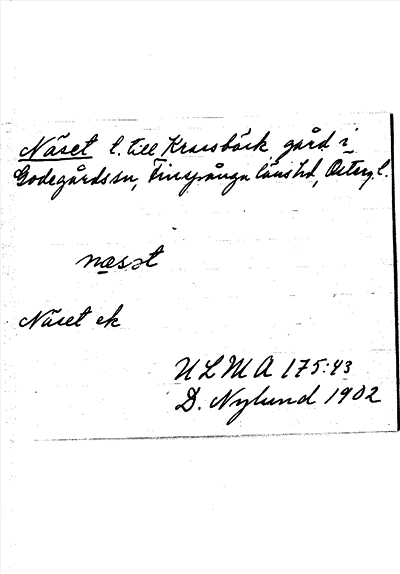 Näset l. till Kraisbäck gård i
Godegårds sn, Finspånga läns hd, Österg. l.
næsət
Näset ek
ULMA 175:43
D. Nylund 1902